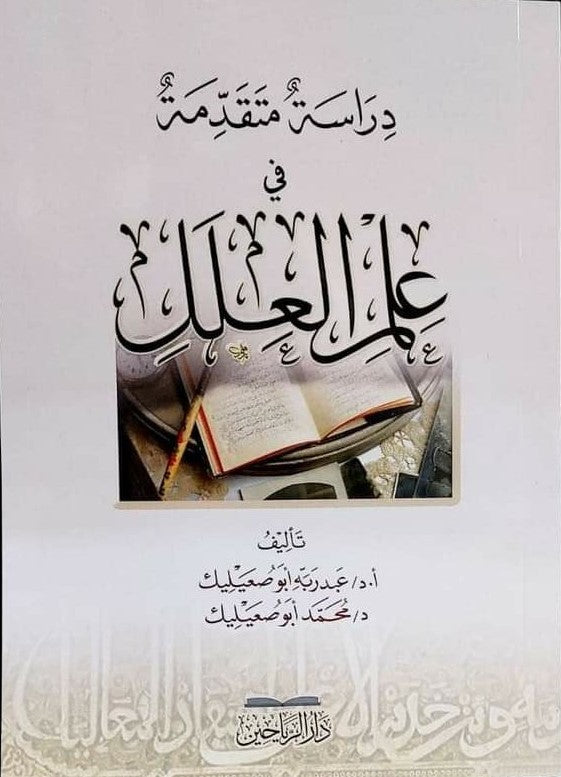 دِرَاسَةٌ مُتَقَدِّمَةٌ
في
عِلْمِ العِلَلِ
تَأليفُ
أ.د/ عَبد رَبّه أبُو صعَيْلِيك
د/ مُحَمَّد أبُو صعَيْلِيك
دَارُ الرَّيَاحِين